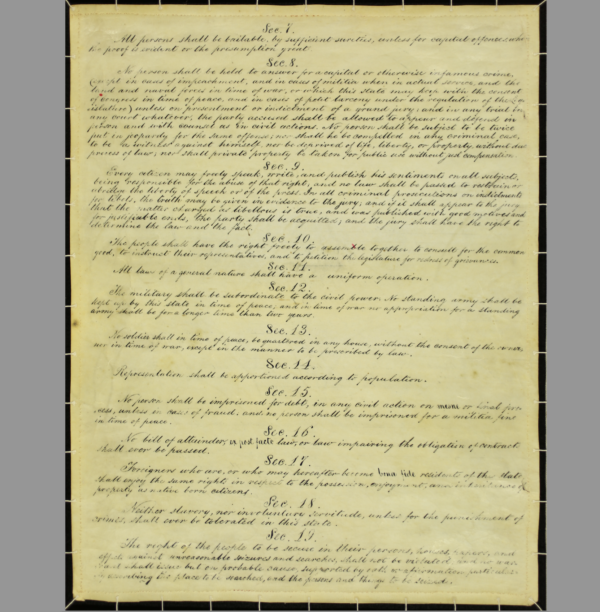 Sec. 7.
All persons shall be bailable, by sufficient sureties, unless for capital offences, when
the proof is evident or the presumption great.
Sec. 8.
No person shall be held to answer for a capital or otherwise infamous crime,
except in cases of impeachment, and in cases of militia when in actual service and the
land and naval forces in time of war, or which this state may keep with the consent
of congress in time of peace, and in cases of petit larceny under the regulation of the Leg
islature) unless on presentment or indictment of a grand jury; and in any trial in
any court whatever, the party accused shall be allowed to appear and defend in
person and with counsel as in civil actions. No person shall be subject to be twice
put in jeopardy for the same offense; nor shall he be compelled in any criminal case
to be a witness against himself, nor be deprived of life, liberty, or property without due
process of law; nor shall private property be taken for public use without just compensation.
Sec. 9.
Every citizen may freely speak, write, and publish his sentiments on all subjects,
being responsible for the abuse of that right, and no law shall be passed to restrain or
abridge the liberty of speech or of the press. In all criminal prosecutions on indictments
for libels, the truth may be given in evidence to the jury, and if it shall appear to the jury
that the matter charged as libellous is true, and was published with good motives and
for justifiable ends, the party shall be acquitted; and the jury shall have the right to
determine the law and the fact.
Sec. 10.
The people shall have the right freely to assemble together to consult for the common
good, to instruct their representatives, and to petition the legislature for redress of grievances.
Sec. 11.
All laws of a general nature shall have a uniform operation.
Sec. 12.
The military shall be subordinate to the civil power. No standing army shall be
kept up by this state in time of peace; and in time of war no appropriation for a standing
army shall be for a longer time than two years.
Sec. 13.
No soldier shall in time of peace, be quartered in any house, without the consent of the owner,
nor in time of war, except in the manner to be prescribed by law.
Sec. 14.
Representation shall be apportioned according to population.
Sec. 15.
No person shall be imprisoned for debt, in any civil action on mesne or final pro-
cess, unless in cases of fraud; and no person shall be imprisoned for a militia fine
in time of peace.
Sec. 16
No bill of attainder, ex post facto law, or law impairing the obligation of contracts
shall ever be passed.
Sec. 17.
Foreigners who are, or who may hereafter become bona fide residents of the state
shall enjoy the same right in respect to the possession, enjoyment, and inheritance of
property as native born citizens.
Sec. 18.
Neither slavery, nor involuntary servitude, unless for the punishment of
crimes, shall ever be tolerated in this state.
Sec. 19.
The right of the people to be secure in their persons, houses, papers, and
effects against unreasonable seizures and searches, shall not be violated and no war-
rant shall issue but on probable cause, supported by oath or affirmation, particular-
ly describing the place to be searched, and the persons and things to be seized.